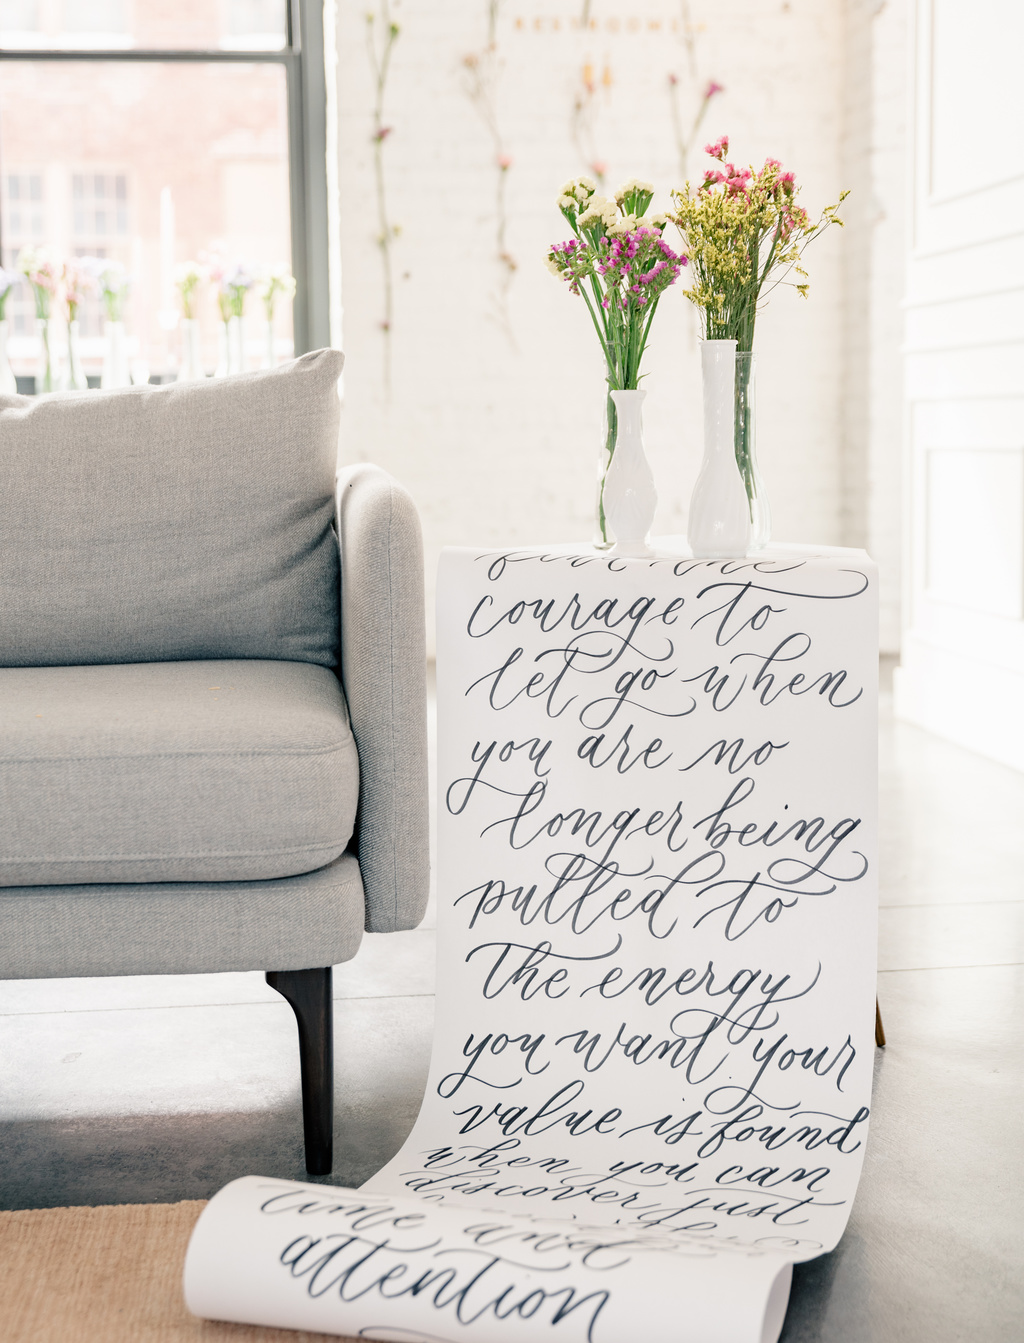 RESTROOMS
find the
courage to
let go when
you are no
longer being
pulled to
the energy
you want your
value is found
when you can
discover just
time and
attention